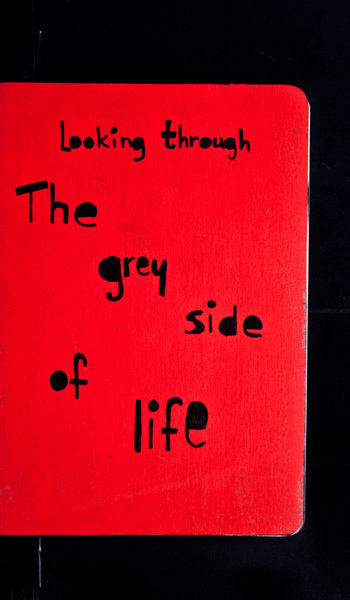 Looking through
The
grey
side
of
life